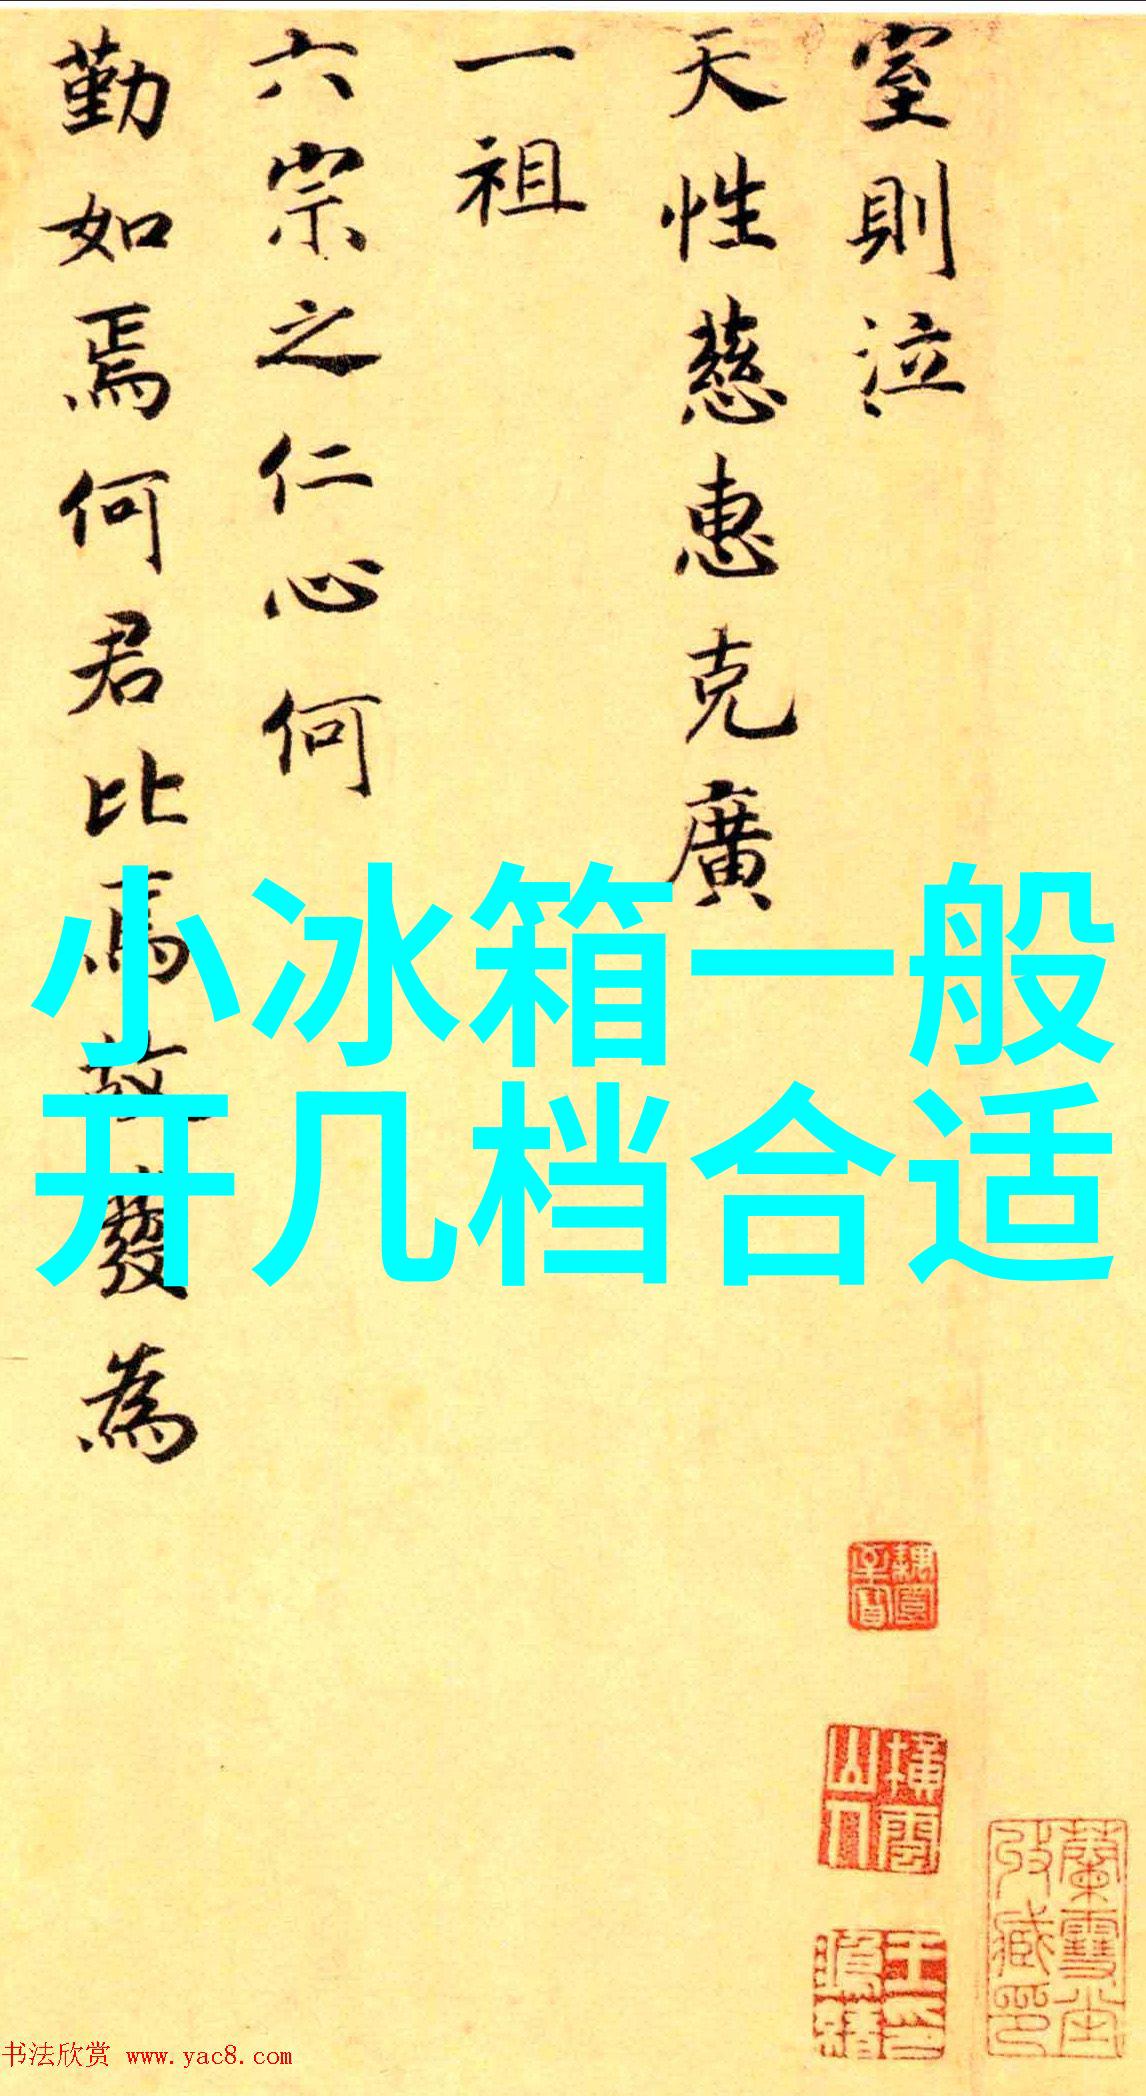 室則泣
天性慈惠克廣
一祖
六宗之仁心何
勤如焉何君比焉
發為
小冰箱一般
开几档合适
書法欣赏 www.yac8.com